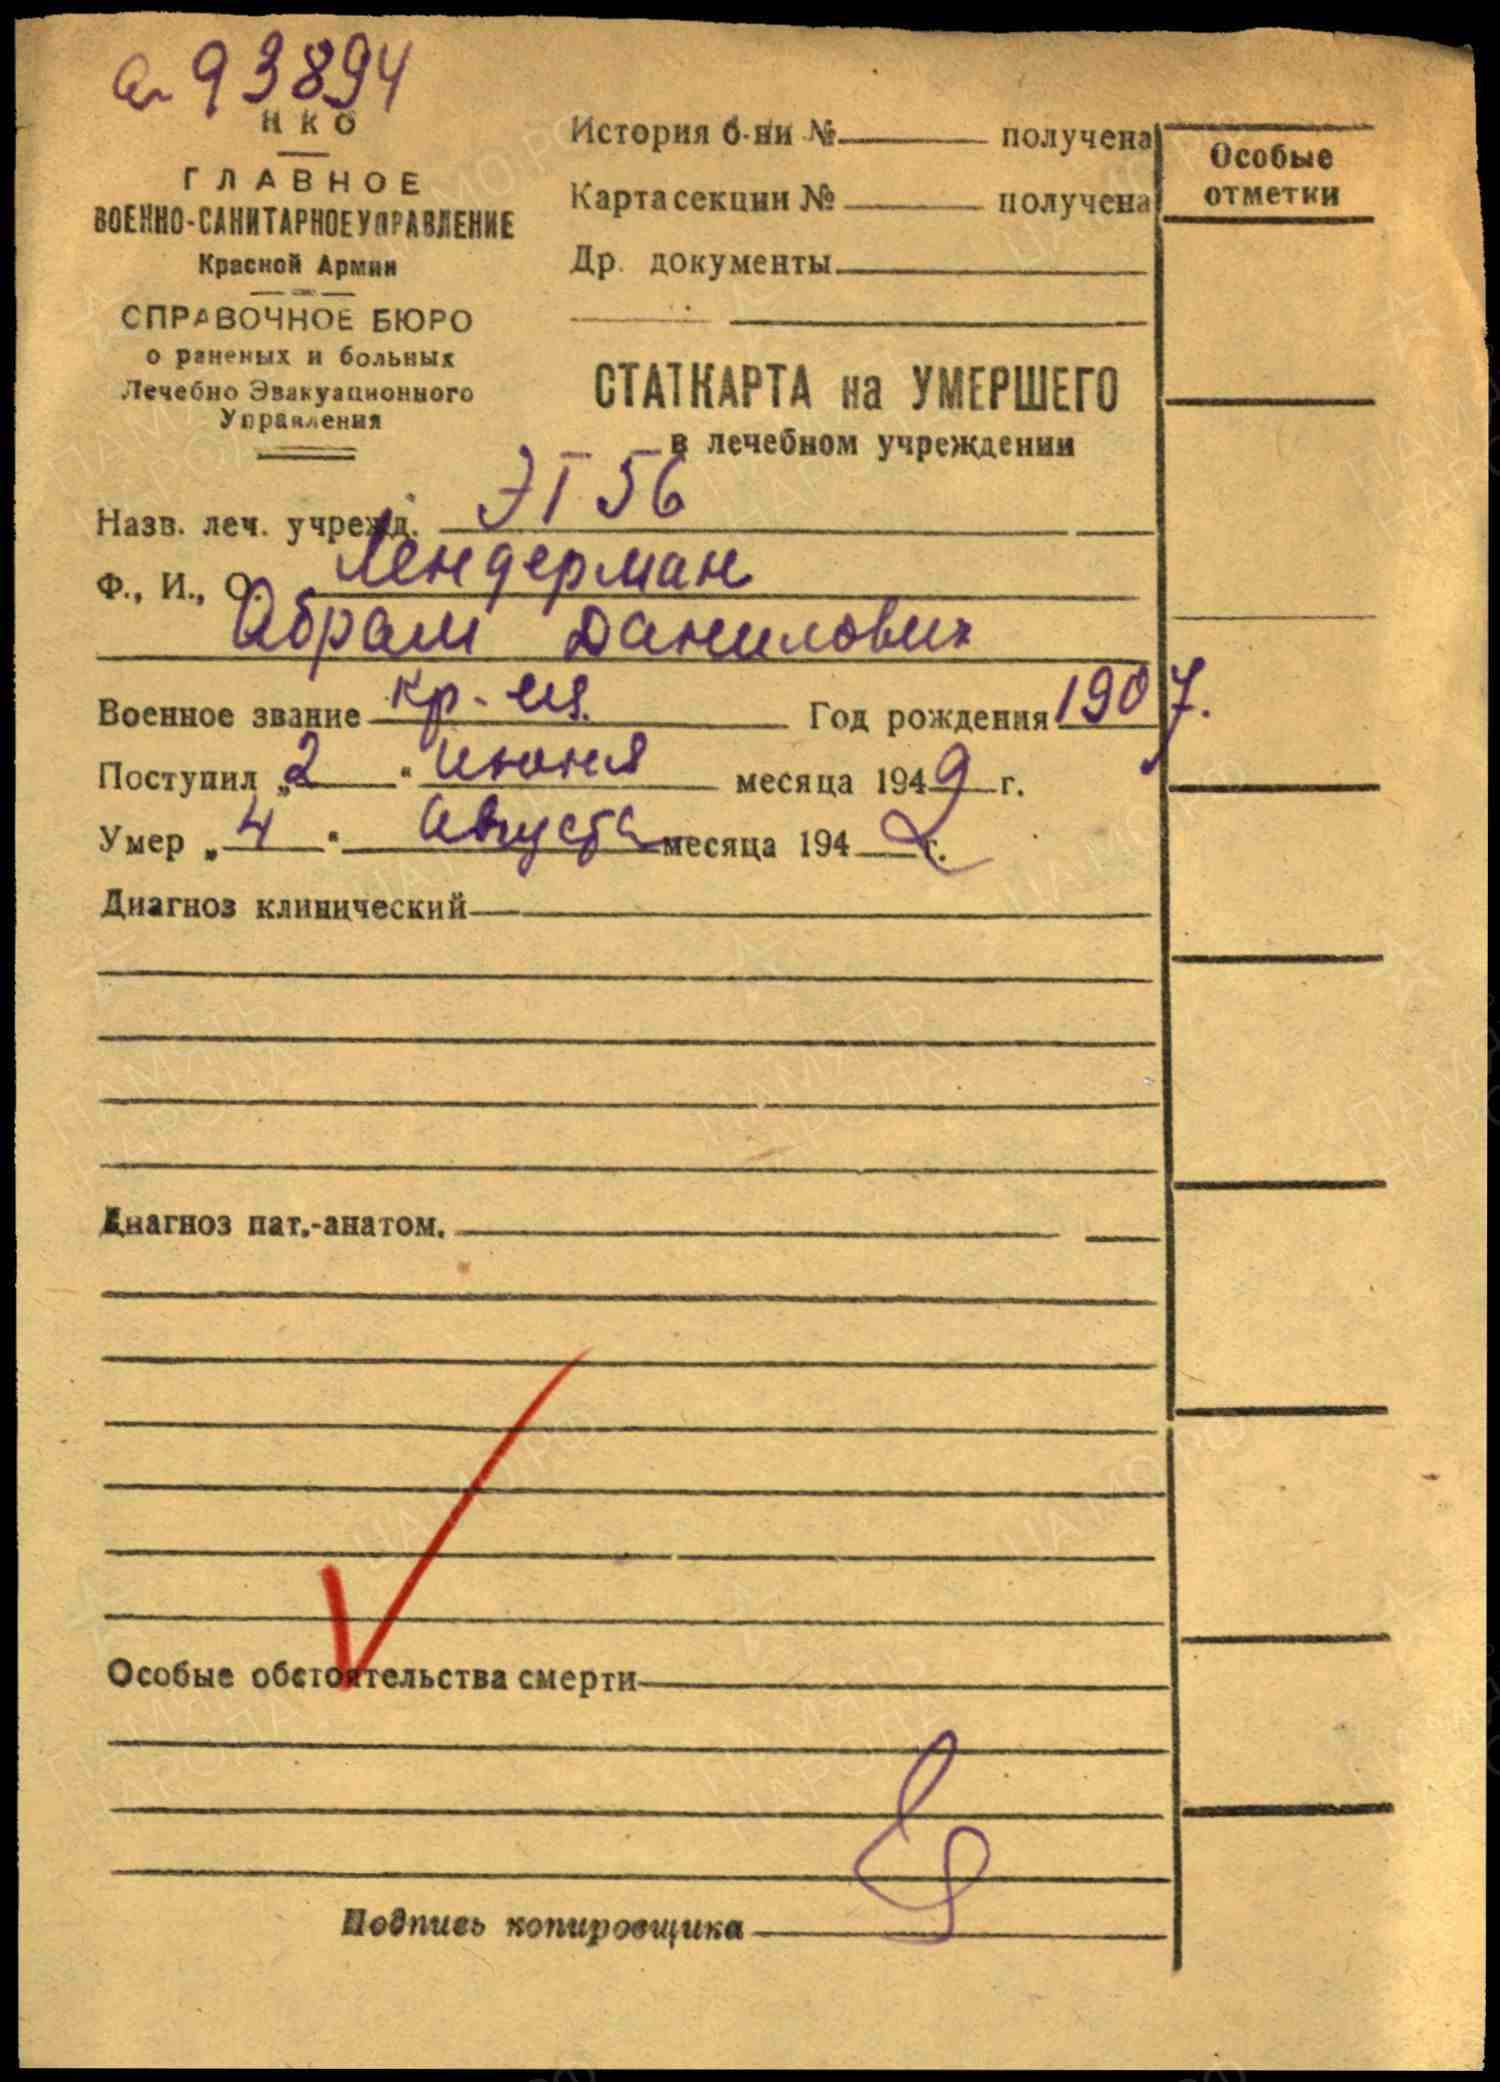 ал 93894
НКО
ГЛАВНОЕ
ВОЕННО-САНИТАРНОЕ УПРАВЛЕНИЕ
Красной Армии
СПРАВОЧНОЕ БЮРО
о раненых и больных
Лечебно Эвакуационного
Управления
История б-ни № получена
Карта секции № получена
Др. документы
Особые
отметки
СТАТКАРТА на УМЕРШЕГО
в лечебном учреждении
Назв. леч. учрежд. ЭГ 56
Ф., И., О. Лендерман
Абрам Данилович
Военное звание кр-ец. Год рождения 1907.
Поступил „2" июня месяца 1942 г.
Умер „4" августа месяца 1942 г.
Диагноз клинический
Диагноз пат.-анатом.
Особые обстоятельства смерти
Подпись копировщика
ПАМЯТЬ
НАРОДА
ЦАМО.РФ